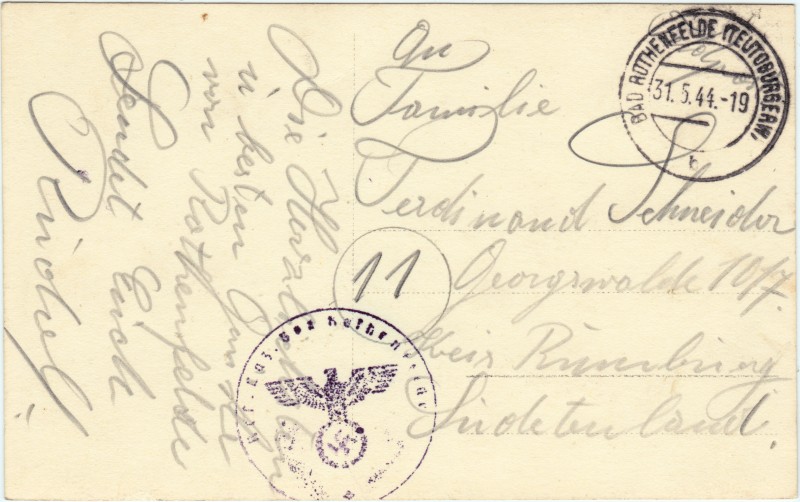 Die Herzlichsten
u besten Danke
von Rothenfelde
sendet Euch
Rudolf
An
Familie
Ferdinand Schneider
Georgswalde 10/7
Kreis Rumburg
Sudetenland
11
BAD ROTHENFELDE (TEUTOBURGERW.)
31.5.44.-19
b
Res. Laz. Bad Rothenfelde